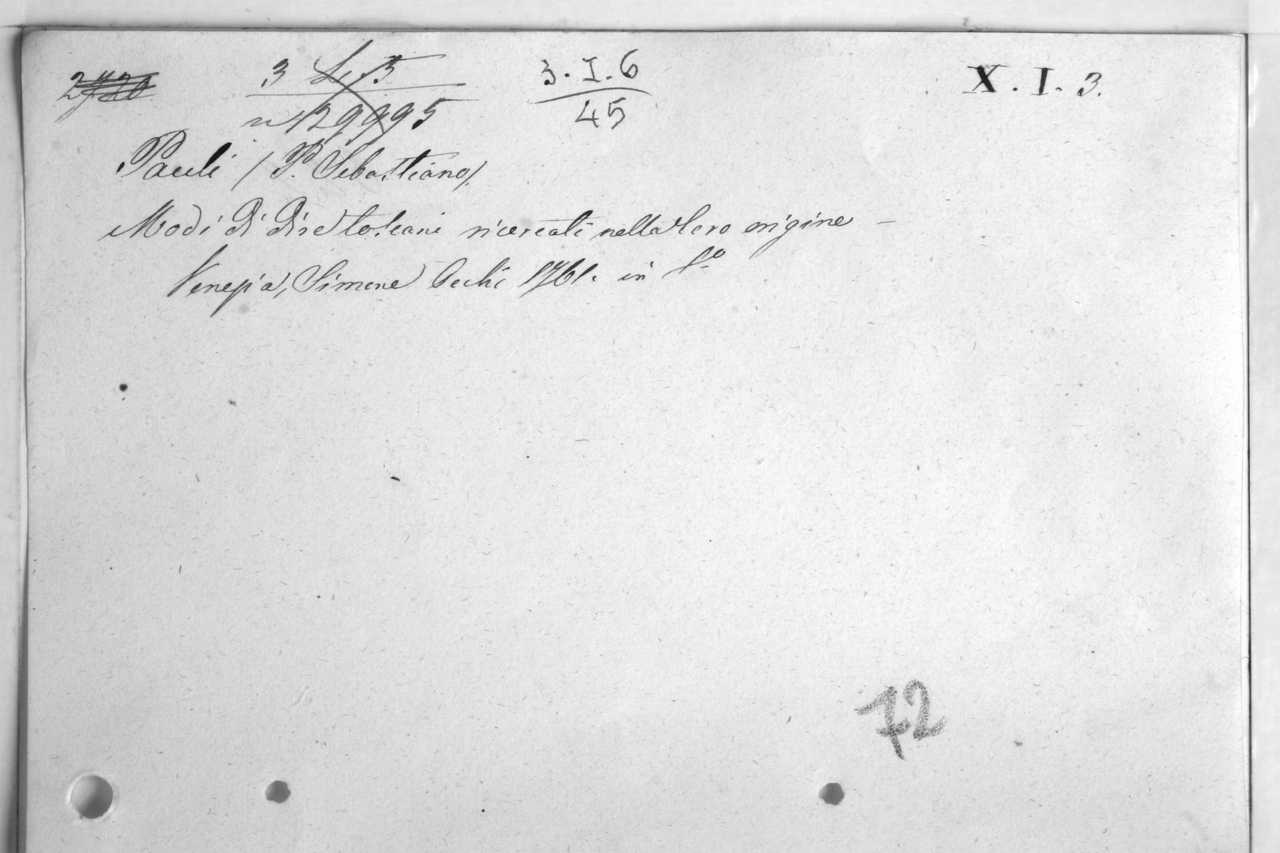 3.I.6 X.I.3.
45
Pauli (P. Sebastiano).
Modi di dire toscani ricercati nella loro origine –
Venezia, Simone Occhi 1761. in 8.º
72